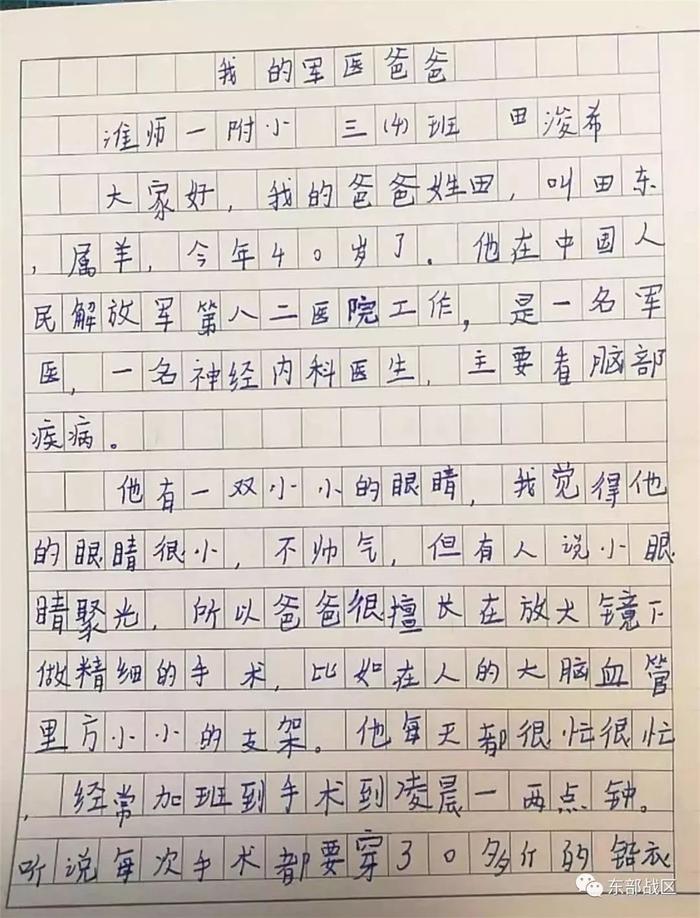 我的军医爸爸
淮师一附小 三(4)班 田浚希
大家好，我的爸爸姓田，叫田东
，属羊，今年40岁了。他在中国人
民解放军第八二医院工作，是一名军
医，一名神经内科医生，主要看脑部
疾病。
他有一双小小的眼睛，我觉得他
的眼睛很小，不帅气，但有人说小眼
睛聚光，所以爸爸很擅长在放大镜下
做精细的手术，比如在人的大脑血管
里方小小的支架。他每天都很忙很忙
，经常加班到手术到凌晨一两点钟。
听说每次手术都要穿30多斤的铅衣
东部战区